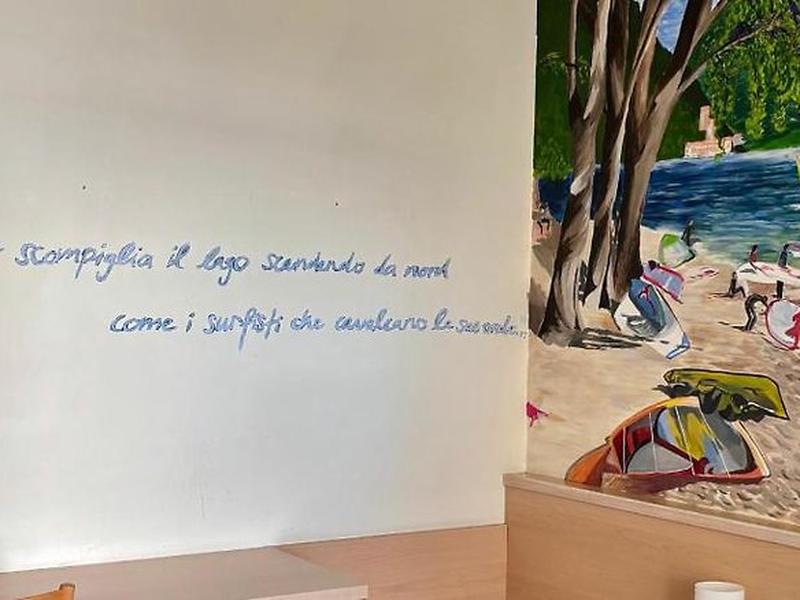 scompiglia il lago scendendo da nord
come i surfisti che cavalcano le sue onde...